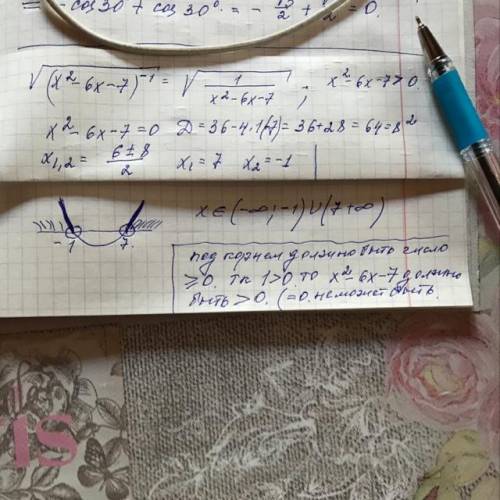 = - cos 30 + cos 30° = - √3/2 + √3/2 = 0.
√(x²-6x-7)⁻¹ = √(1/(x²-6x-7)) ; x²-6x-7>0
x²-6x-7=0 D=36-4·1(-7)=36+28=64=8²
x₁,₂ = (6±8)/2 x₁=7 x₂=-1
-1 7
x∈(-∞;-1)∪(7+∞)
под корнем должно быть число
≥0. тк 1>0. то x²-6x-7 должно
быть >0. (=0. не может быть.
is